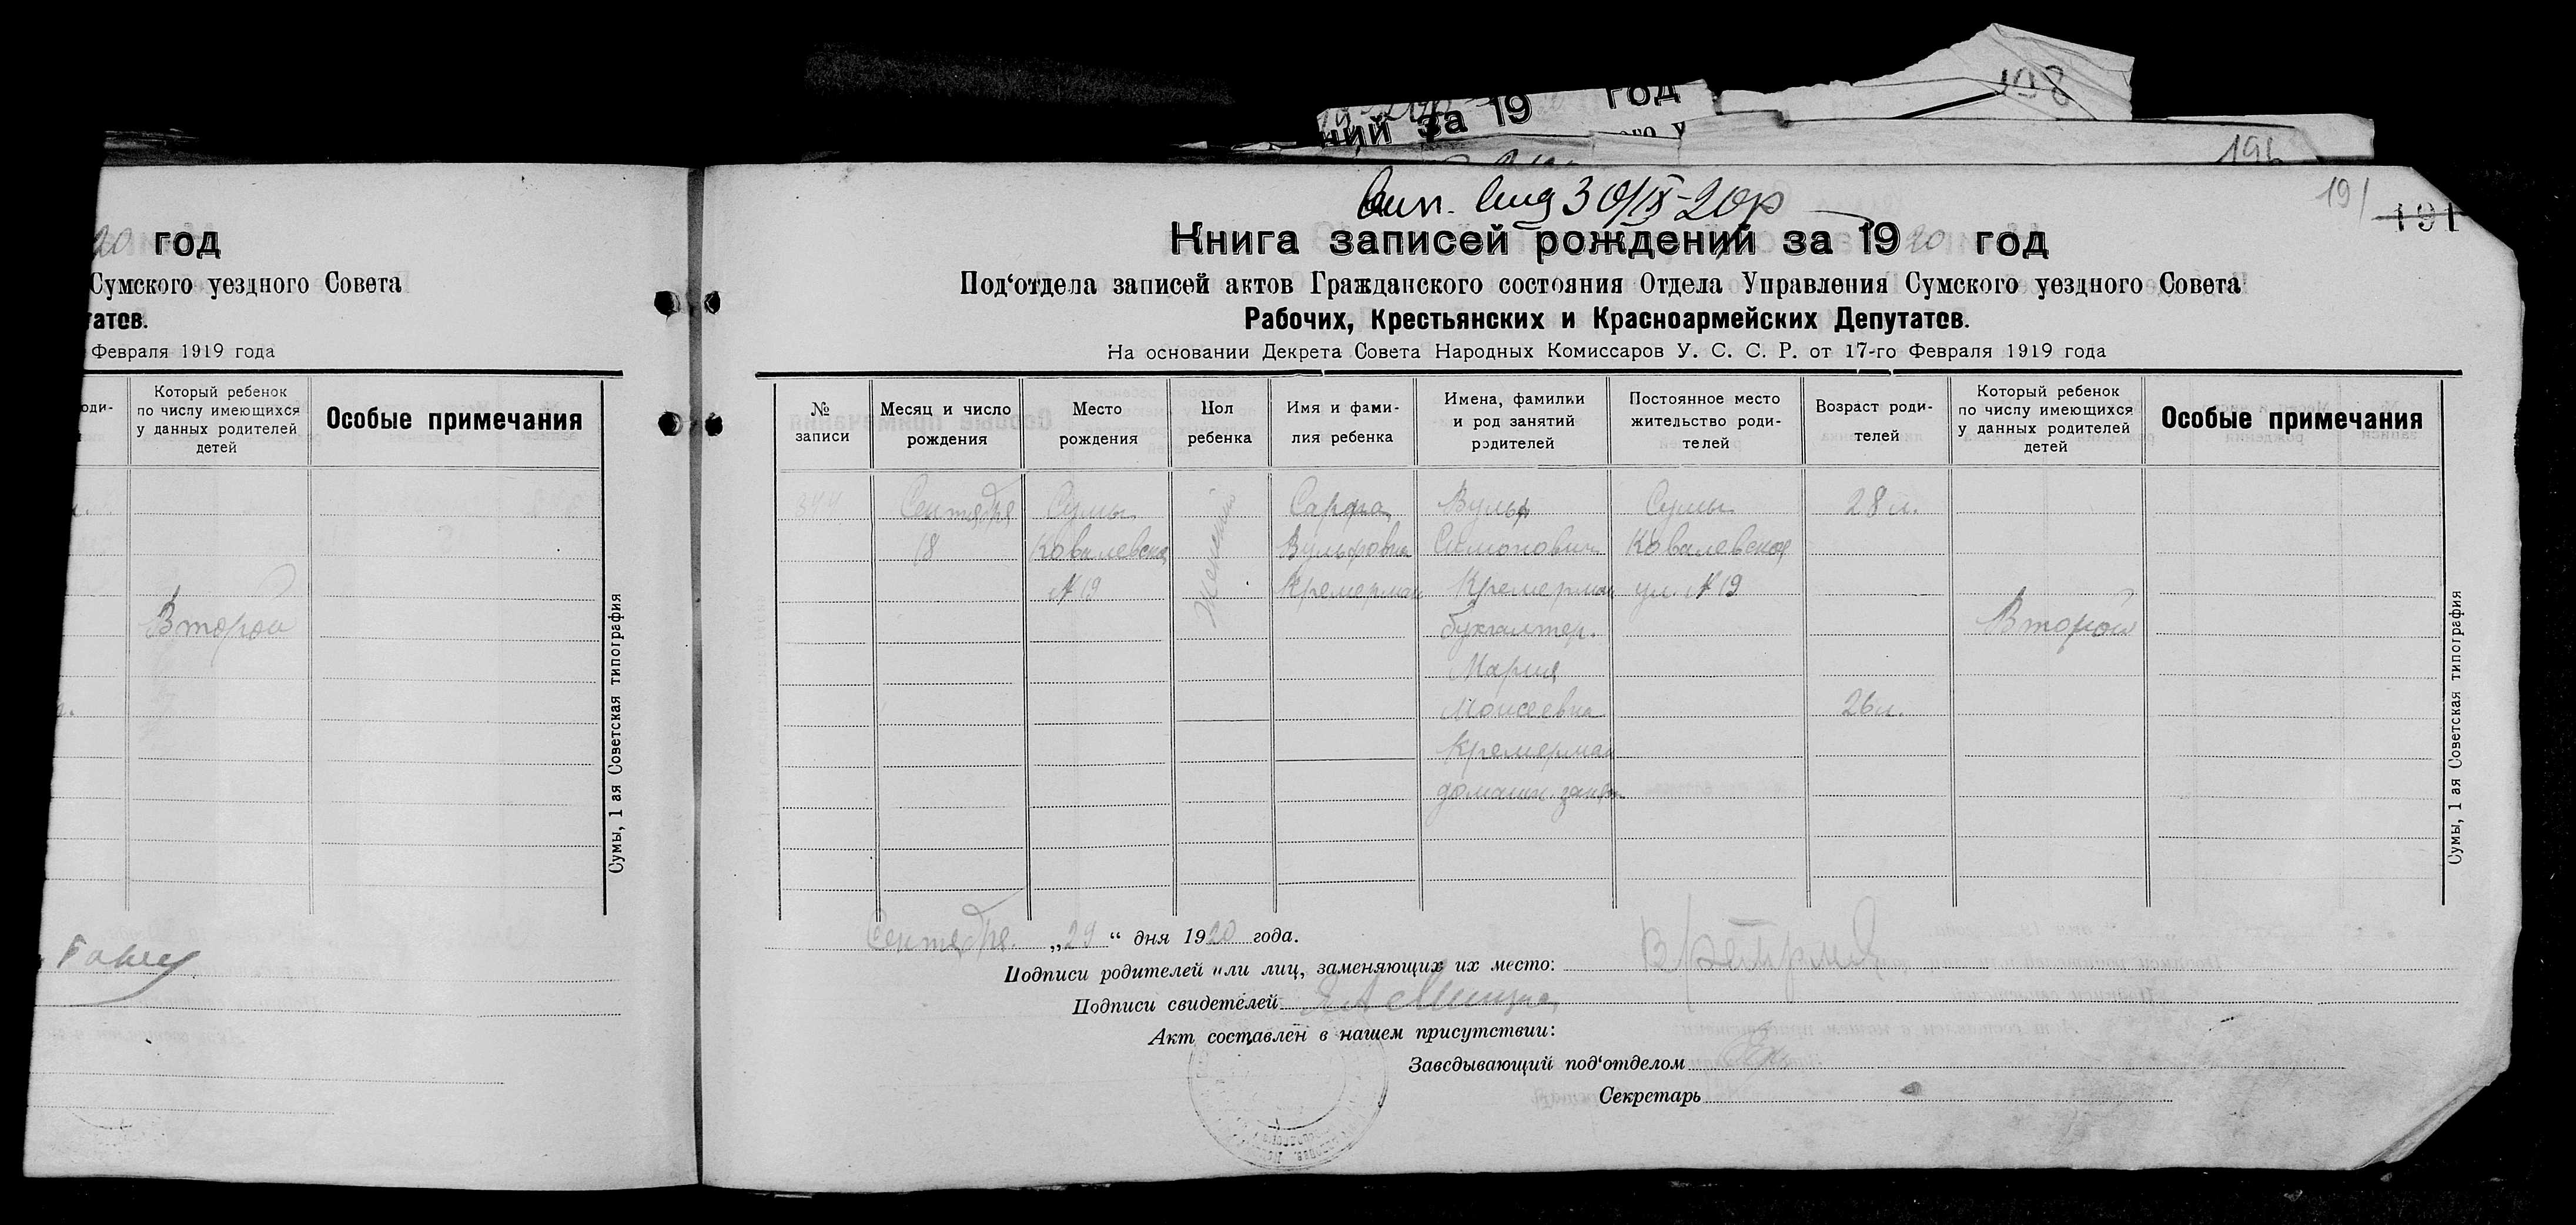 ний за 19 год
198
20 год
Сумского уездного Совета
татов.
Февраля 1919 года
оди-
Который ребенок
по числу имеющихся
у данных родителей
детей
Особые примечания
Второй
Сумы, 1 ая Советская типография
191
191
30/IX-20р
Книга записей рождений за 1920 год
Под‘отдела записей актов Гражданского состояния Отдела Управления Сумского уездного Совета
Рабочих, Крестьянских и Красноармейских Депутатов.
На основании Декрета Совета Народных Комиссаров У. С. С. Р. от 17-го Февраля 1919 года
№
записи
Месяц и число
рождения
Место
рождения
Пол
ребенка
Имя и фами-
лия ребенка
Имена, фамилии
и род занятий
родителей
Постоянное место
жительство роди-
телей
Возраст роди-
телей
Который ребенок
по числу имеющихся
у данных родителей
детей
Особые примечания
344
Сентября
18
Сумы
Ковалевская
№ 19
Женский
Сарра
Вульфовна
Кремерман
Вульф
Симонович
Кремерман
бухгалтер.
Мария
Моисеевна
Кремерман
домашн. занят.
Сумы
Ковалевская
ул. № 19
28 л.
26 л.
Второй
Сумы, 1 ая Советская типография
Сентября „29“ дня 1920 года.
Подписи родителей или лиц, заменяющих их место:
Подписи свидетелей
Акт составлен в нашем присутствии:
Заведывающий под‘отделом
Секретарь